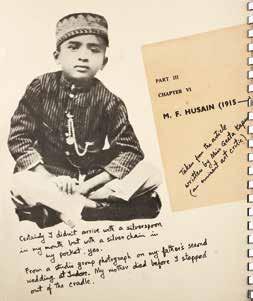 PART III
CHAPTER VI
M. F. HUSAIN (1915—
Taken from the article
written by Miss Geeta Kapur
(an eminent art critic)
Certainly I didn't arrive with a silverspoon
in my mouth but with a silver chain in
my pocket, yes.
From a studio group photograph on my father's second
wedding at Indore. My mother died before I stepped
out of the cradle.